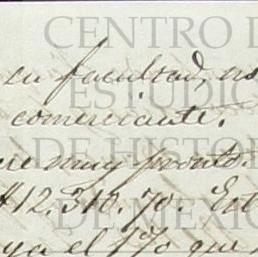 CENTRO D
en facultad,
ESTUDIO
comerciante.
DE HISTO
muy pronto.
$12.310.70. Est
DE MEXIC
ya el 1% que